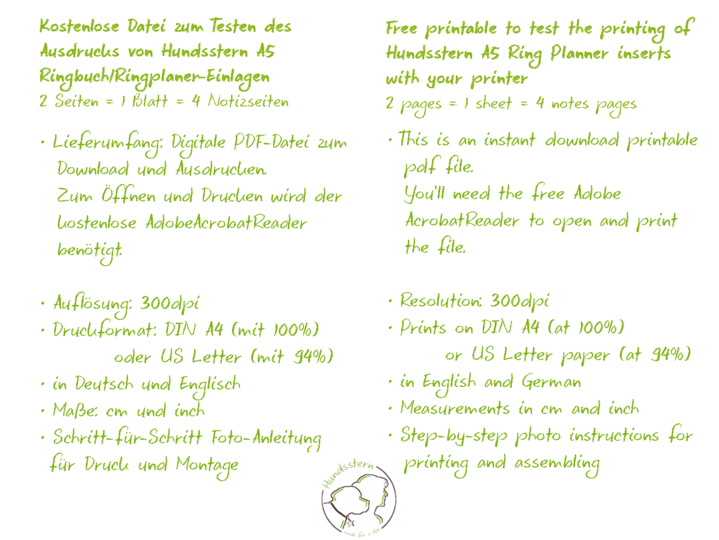 Kostenlose Datei zum Testen des
Ausdrucks von Hundsstern A5
Ringbuch/Ringplaner-Einlagen
2 Seiten = 1 Blatt = 4 Notizseiten
• Lieferumfang: Digitale PDF-Datei zum
Download und Ausdrucken.
Zum Öffnen und Drucken wird der
kostenlose AdobeAcrobatReader
benötigt.
• Auflösung: 300dpi
• Druckformat: DIN A4 (mit 100%)
oder US Letter (mit 94%)
• in Deutsch und Englisch
• Maße: cm und inch
• Schritt-für-Schritt Foto-Anleitung
für Druck und Montage
Free printable to test the printing of
Hundsstern A5 Ring Planner inserts
with your printer
2 pages = 1 sheet = 4 notes pages
• This is an instant download printable
pdf file.
You'll need the free Adobe
AcrobatReader to open and print
the file.
• Resolution: 300dpi
• Prints on DIN A4 (at 100%)
or US Letter paper (at 94%)
• in English and German
• Measurements in cm and inch
• Step-by-step photo instructions for
printing and assembling
Hundsstern